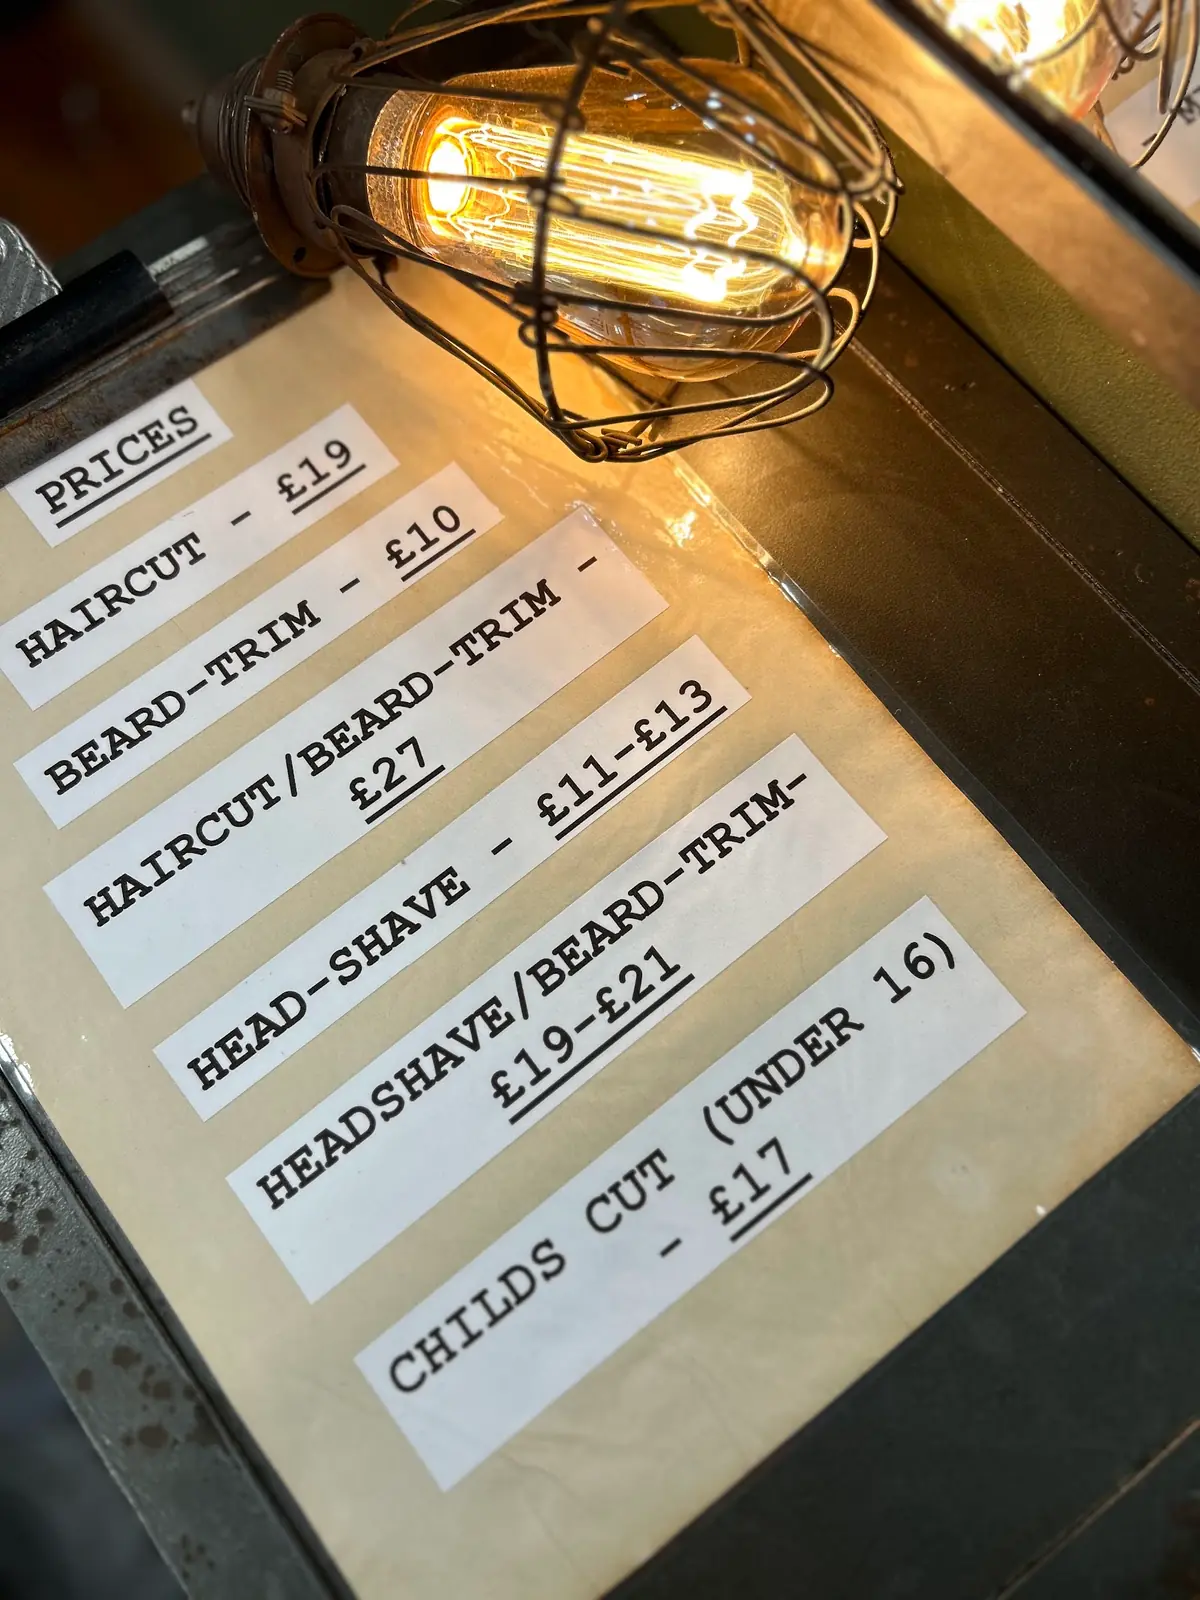 PRICES
HAIRCUT - £19
BEARD-TRIM - £10
HAIRCUT/BEARD-TRIM -
£27
HEAD-SHAVE - £11-£13
HEADSHAVE/BEARD-TRIM-
£19-£21
CHILDS CUT (UNDER 16)
- £17